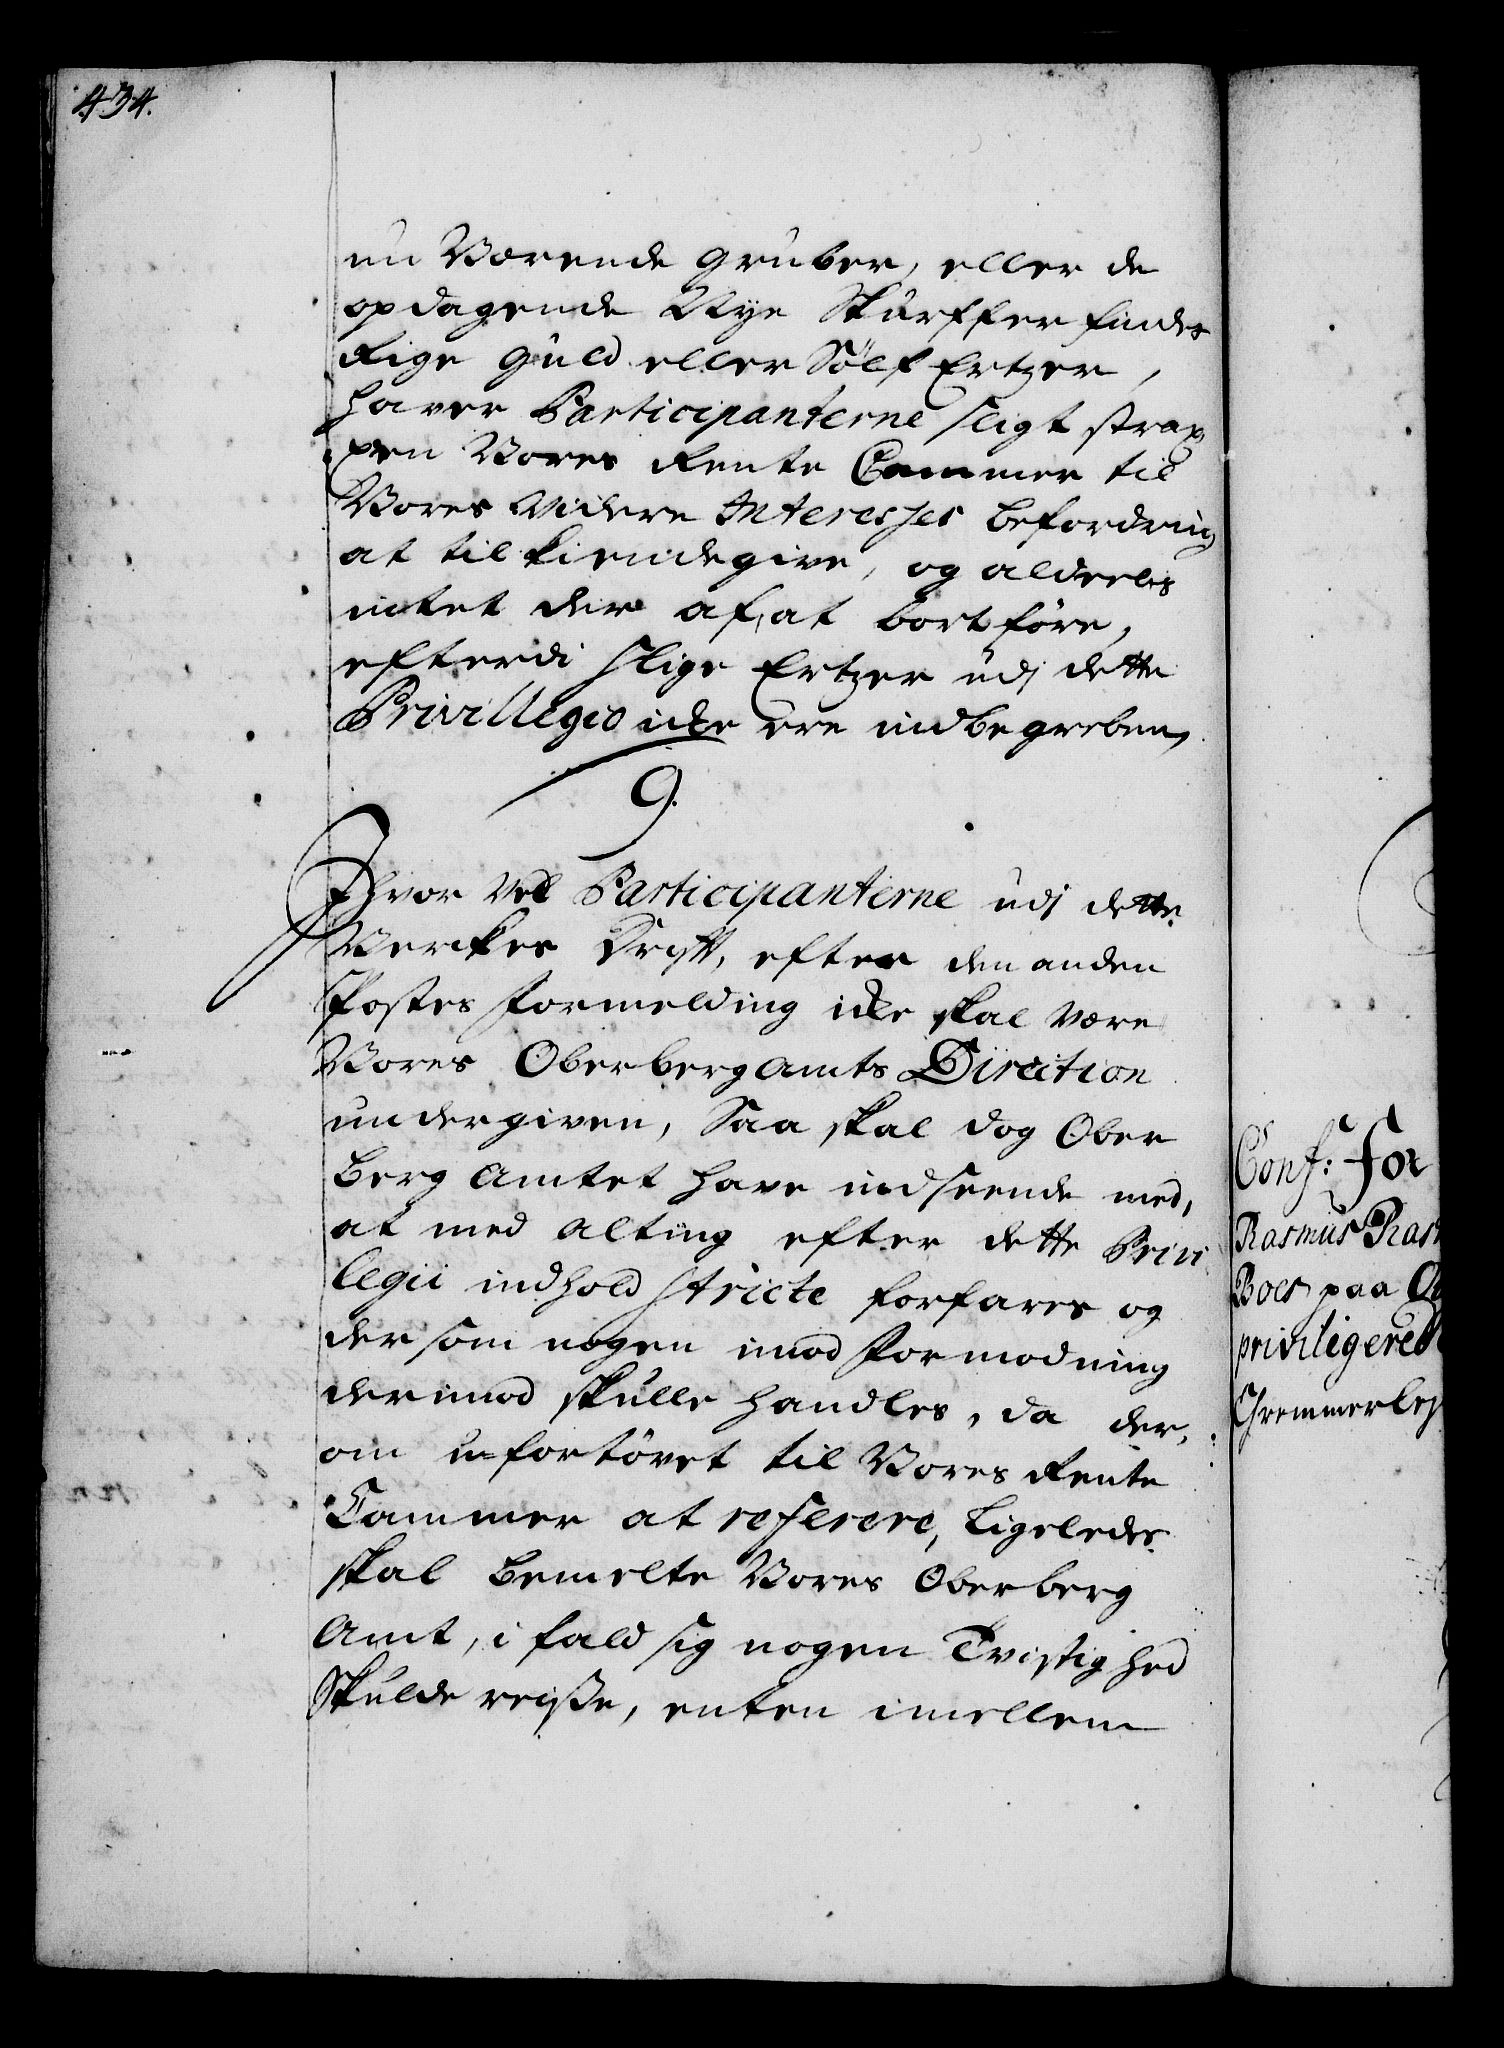 434.
nu Værende Gruber, eller de
opdagende Nye Skurffer findes
Rige Guld eller Sölf Ertzer,
haver Participanterne sligt strax
Vores Rente Cammer til
Vores Videre Interesses befordring
at tilkiendegive, og alderlis
intet der af at bortföre,
efterdi slige Ertzer udj dette
Privillegio icke ere indbegreben,
9.
Ihvor vel Participanterne udj dette
Verckes Drift, efter den anden
Postes Formelding icke skal være
Vores Oberbergamts Direction
undergiven, Saa skal dog Ober
Berg Amtet have indseende med,
at med alting efter dette Privi
legii indhold stricte forfares og
der som nogen imod Formodning
derimod skulle handles, da der,
om u-fortövet til Vores Rente
Cammer at referere, Ligeledes
skal bemelte Vores Oberberg
Amt, i fald sig nogen Tvistighed
Skulde reiße, enten imellem
Conf: for
Rasmus Ras
Boes paa
priviligered
Cremmerley